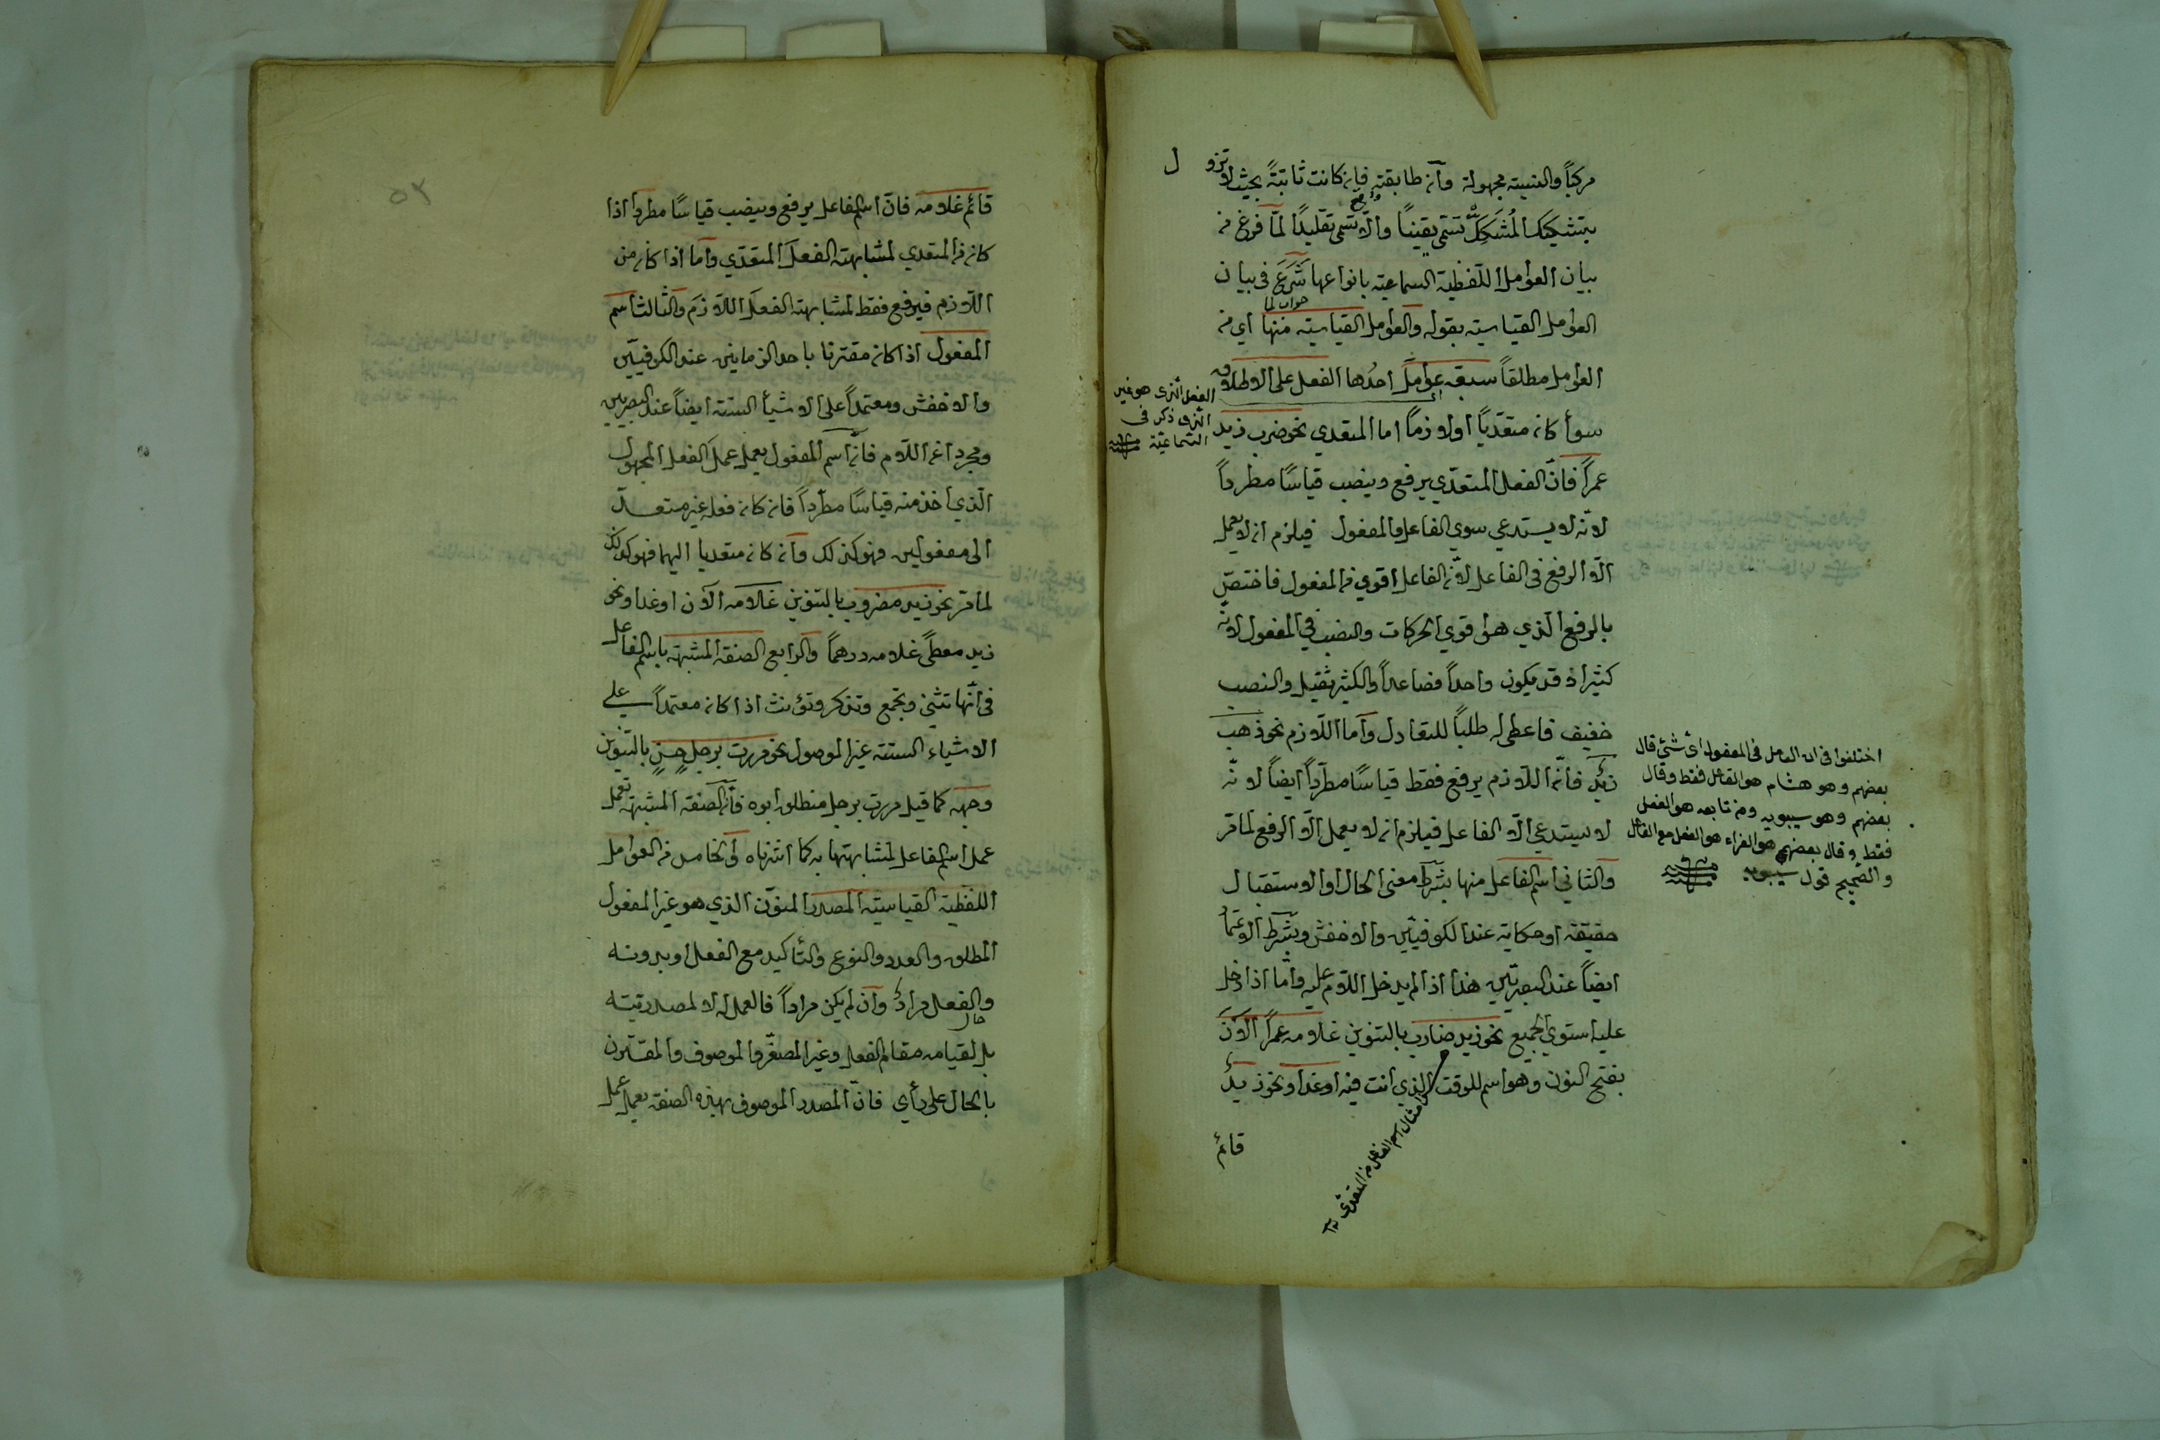 مركباً والنسبته مجهولة وان طابقته فان كانت ثابتةً بحيث لا تزول
بتشكيك المُشَكِكِ تسمى يقيناً والا تسمى تقليداً لمّا فرغ من
بيان العوامل اللفظية السماعية بانواعها شَرَعَ فى بيان
جواب لما
العوامل القياسيته بقوله والعوامل القياسيته منها اى من
العوامل مطلقاً سبعة عوامل احدُها الفعل على الاطلاق
الفعل الذى هو غير
الذى ذكر فى
السماعية
سوأ كان متعدّياً او لازماً اما المتعدي نحو ضرب زيد
عمراً فانّ الفعل المتعدّي يرفع وينصب قياسًا مطرداً
لانّه لا يستدعي سوي الفاعل والمفعول فيلزم ان لا يعمل
الّا الرفع فى الفاعل لانّ الفاعل اقوي من المفعول فاختصّ
بالرفع الذي هو اقوي الحركات والنصب في المفعول لانّه
كثير اذ قد يكون واحداً فصاعداً والكثير ثقيل والنصب
خفيف فاعطى له طلبًا للتعادل وأما اللّازم نحو ذهب
زيدٌ فأنّ اللّازم يرفع فقط قياسًا مطّرداً ايضاً لانّه
لا يستدعي الّا الفاعل فيلزم ان لا يعمل الّا الرفع لما مّر
والثانى اسم الفاعل منها بشرط معنى الحال او الاستقبال
حقيقة او حكاية عند الكوفيّين والاخفش وبشرط الاعتماد
ايضاً عند البصرييّن هذا اذا لم يدخل اللام عليه واما اذا دخل
عليه استوي الجميع نحو زيد ضارب بالتنوين غلامه عمراً الآن
بفتح النون وهو اسم للوقت الذي انت فيه او غداً ونحو زيدٌ
قائم
مثال اسم الفاعل من المتعدى
اختلفوا فى ان العامل فى المفعول اىّ شئ قال
بعضهم وهو هشام هو الفاعل فقط وقال
بعضهم وهو سيبويه ومن تابعه هو الفعل
فقط وقال بعضهم هو الفراء هو الفعل مع الفاعل
والصحيح قول سيبويه
٥٢
قائم غلامه فانّ اسم الفاعل يرفع وينصب قياسًا مطرداً اذا
كان من المتعدي لمشابهته الفعل المتعدّي واما اذا كان من
اللّازم فيرفع فقط لمشابهته الفعل اللّازم والثالث اسم
المفعول اذا كان مقترنا باحد الزمانين عند الكوفييّن
والاخفش ومعتمداً على الاشيأ الستة ايضاً عند البصريين
ومجردا عن اللّام فانّ اسم المفعول يعمل عمل الفعل المجهول
الّذي اخذ منه قياسًا مطّرداً فان كان فعله غير متعدّ
الى مفعولين فهو كذلك وان كان متعديا اليهما فهو كذلك
لما مّر نحو زيد مضروب بالتنوين غلامه الآن او غدا ونحو
زيد معطىً غلامه درهماً والرابع الصفة المشبهة باسم الفاعل
فى انّها تثنى وتجمع وتذكر وتؤنث اذا كان معتمداً على
الاشياء الستته غير الموصول نحو مررت برجلٍ حسنٍ بالتنوين
وجهه كما قيل مررت برجل منطلق ابوه فأنّ الصفة المشبهة تعمل
عمل اسم الفاعل لمشابهتها به كما اشرناه والخامس من العوامل
اللفظية القياسيته المصدر المنوّن الذي هو غير المفعول
المطلق والعدد والنوع والتأكيد مع الفعل او بدونه
والفعل مرادٌ وان لم يكن مراداً فالعمل له لا لمصدريّته
حال
بل لقيامه مقام الفعل وغير المصغّر والموصوف والمقترن
بالحال على رأي فانّ المصدر الموصوف بهذه الصفة يعمل عمل